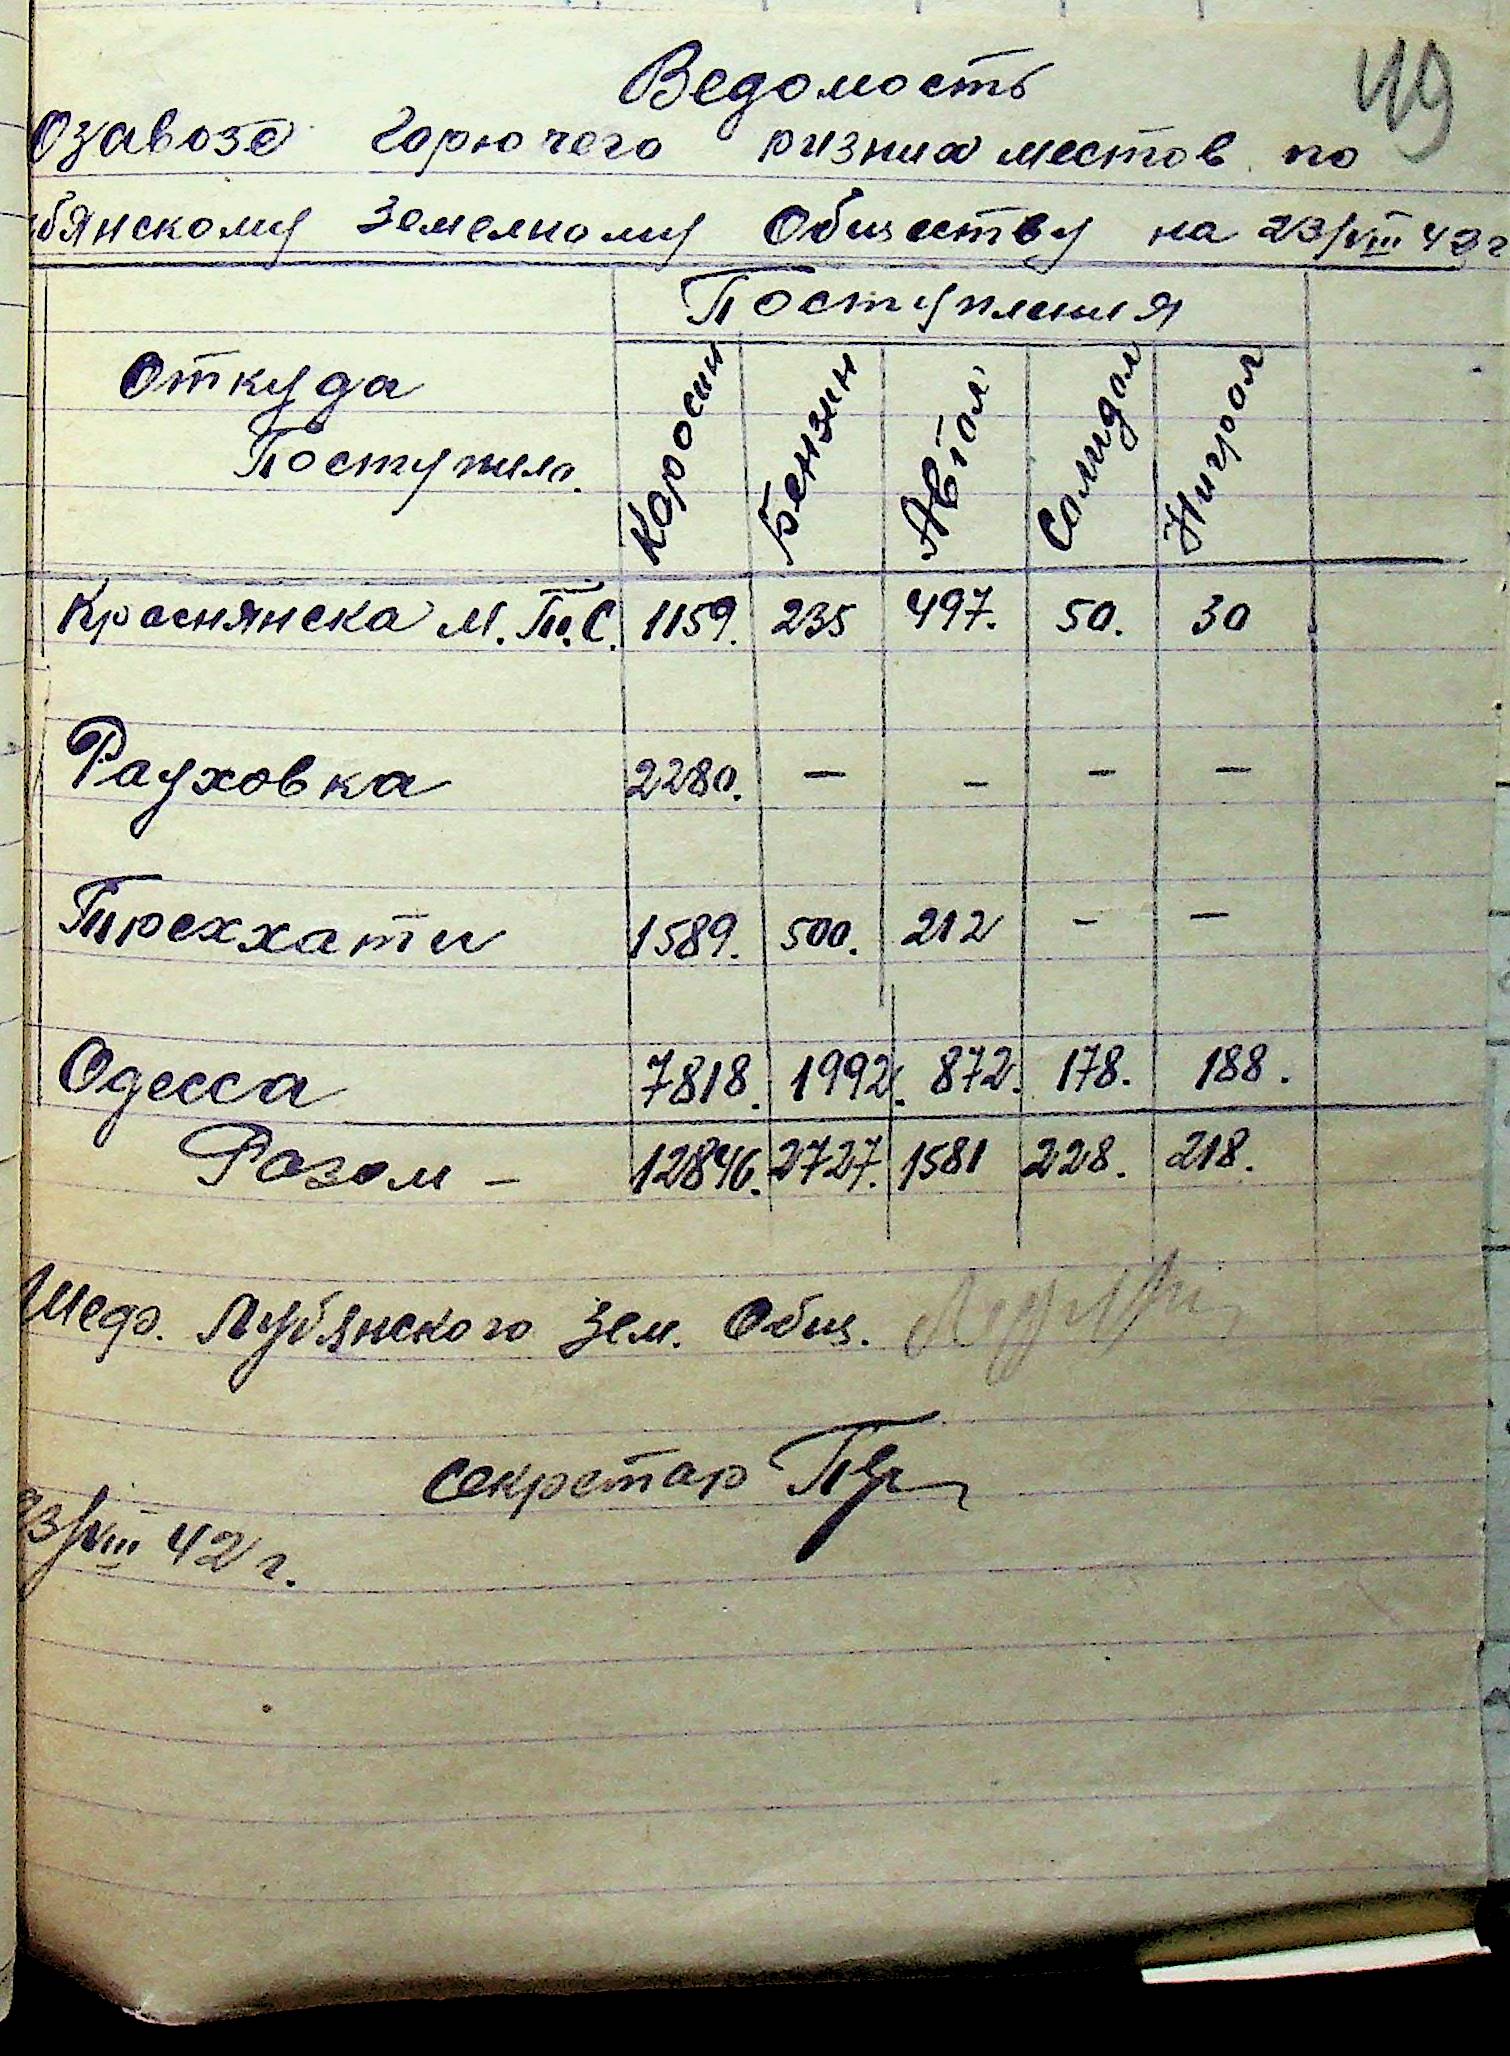 49
Ведомость
О завозе Горючего ризних местов по
бянскому Земелному Обществу на 23/VIII 42 г
Откуда Поступило.
Поступления
Каросин Бензин Автол Солидол Нигрол
Краснянска М.Т.С. 1159. 235 497. 50. 30
Рауховка 2280. — – – —
Треххати 1589. 500. 212 – —
Одесса 7818. 1992. 872. 178. 188.
Разом – 12846. 2727. 1581 228. 218.
Шеф. Лубянского Зем. Общ.
Секретар
23/VIII 42 г.